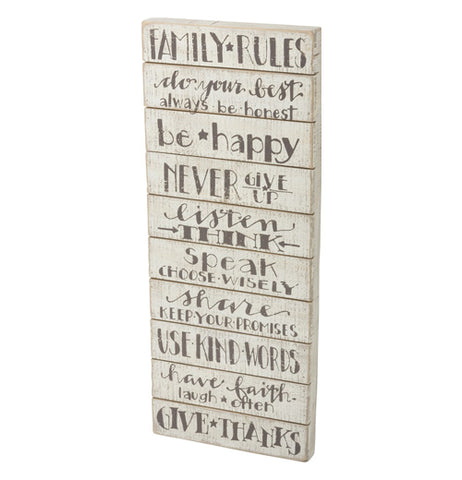 FAMILY★RULES
do your best
always·be·honest
be★happy
NEVER GIVE UP
listen
THINK
Speak
CHOOSE·WISELY
share
KEEP·YOUR·PROMISES
USE·KIND·WORDS
have faith
laugh★often
GIVE★THANKS